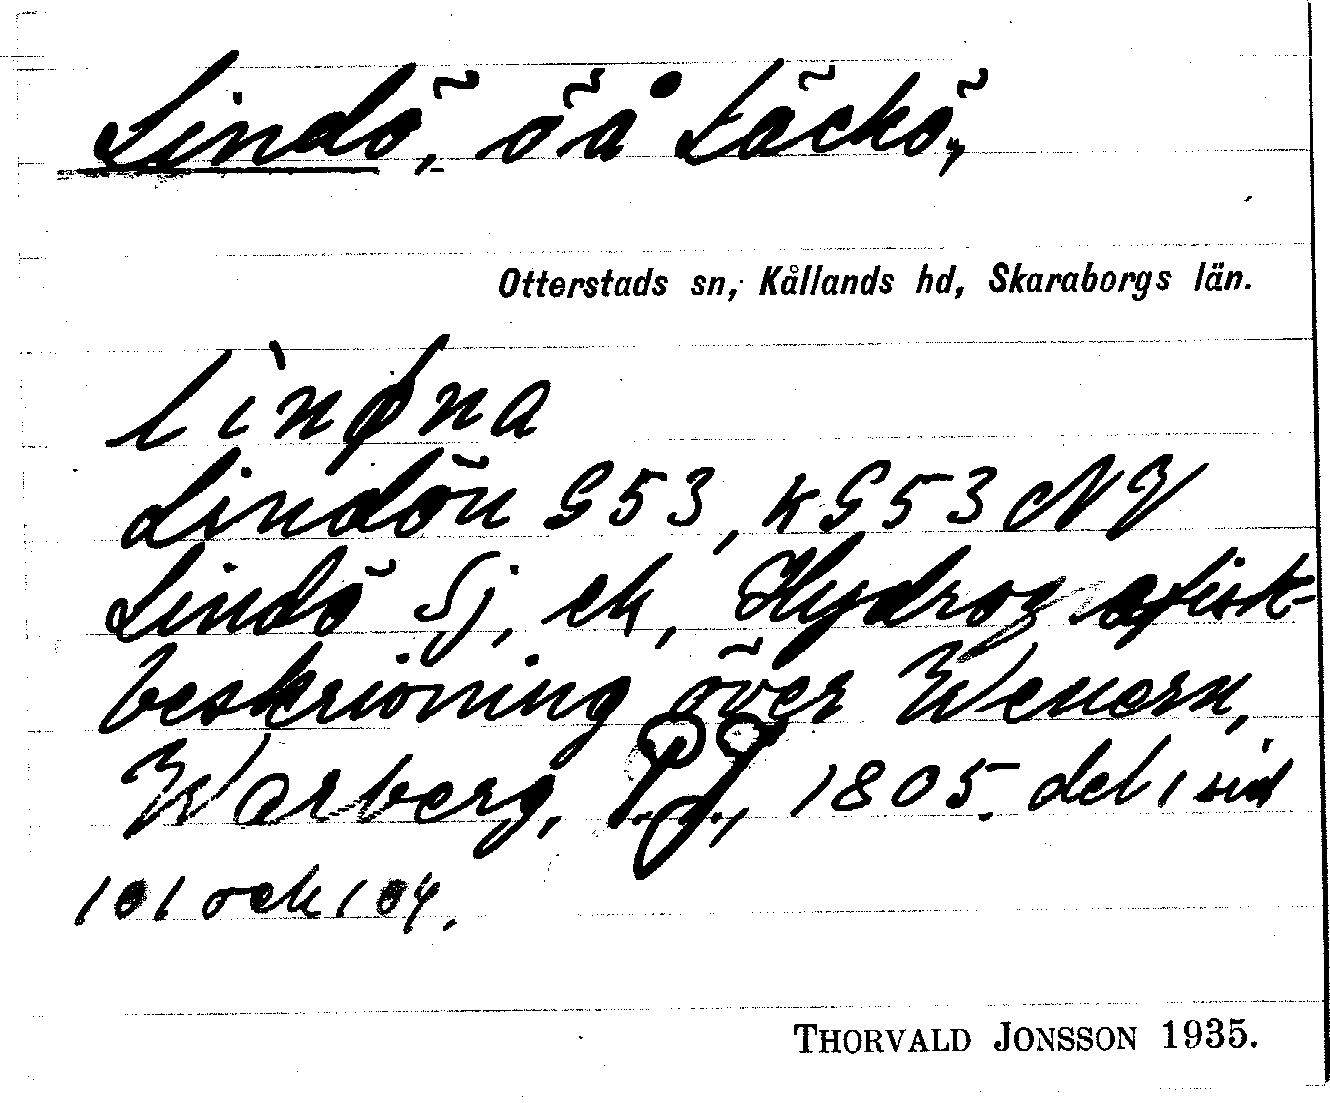 Lindö, ö å Läckö,
Otterstads sn, Kållands hd, Skaraborgs län.
li`nøna
Lindön G53, kG53 NV
Lindö Sj. ek, Hydrografisk-
beskrivning över Wenern,
Warberg, 1805. del 1 sid
101 och 104.
THORVALD JONSSON 1935.